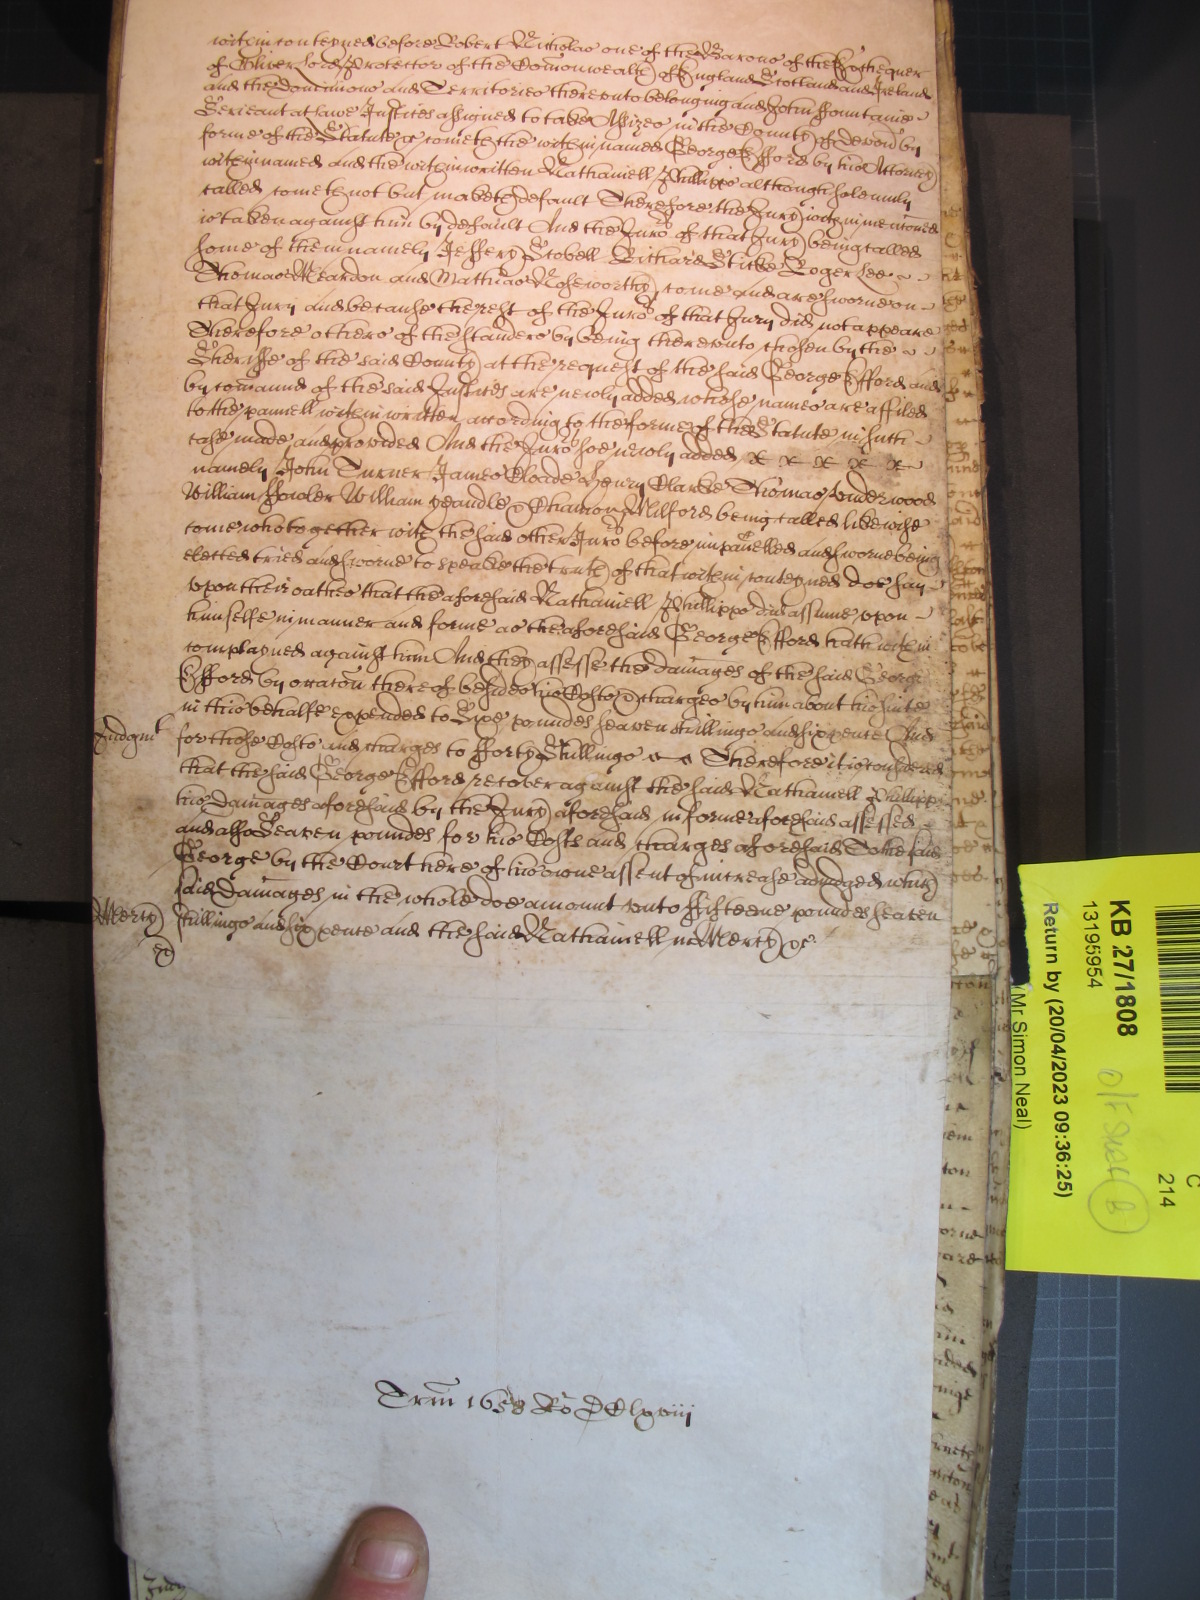 within conteyned before Robert Nicholas one of the Barons of the Exchequer
of Oliver Lord Protector of the Comonwealth of England Scotland and Ireland
and the Dominions and Territories thereunto belonging and John Fountaine
Serieant at Lawe Justices assigned to take Assizes in the County of Devon by
forme of the Statute &c cometh the within named George Efford by his Attorney
within named and the within written Nathaniell Phillipps although solemnly
called cometh not but maketh default Therefore the Jury within mentoned
is taken against him by default And the Juro's of that Jury being called
some of them namely Jeffery Stobell Richard Sticke Roger Lee
Thomas Meardon and Mathias Noseworthy come and are sworne on
that Jury and because the rest of the Juro's of that Jury did not appeare
Therefore others of the standers by being thereunto chosen by the
Sheriffe of the said County at the request of the said George Efford and
by comaund of the said Justices are newly added whose names are affiled
to the pannell within written according to the forme of the Statute in such
case made and provided And the Juro's soe newly added &c &c &c &c &c
namely John Turner James Cloade Henry Clarke Thomas Underwood
William Fowler William yeandle & Milford being called likewise
come who together with the said other Juro's before impanelled and sworne being
elected tried and sworne to speake the truth of that within conteyned doe say
upon their oathes that the aforesaid Nathaniell Phillipps did assume upon
himselfe in manner and forme as the aforesaid George Efford hath within
complayned against him And they assesse the damages of the said George
Efford by occaton thereof besides his Costs & charges by him about his suite
in this behalfe expended to Sixe poundes seaven shillings and six pence And
Judgmt
for those Costs and charges to fforty Shillings Therefore it is considered
that the said George Efford recover against the said Nathaniell Phillipps
his Damages aforesaid by the Jury aforesaid in forme aforesaid assessed
and also Seaven poundes for his Costs and charges aforesaid to the said
George by the Court here of his owne assent of increase adiudged which
said Damages in the whole doe amount unto ffifteene poundes seaven
Mercy
shillings and six pence and the said Nathaniell in Mercy &c
Trin 1658 Ro DClxviii
KB 27/1808
13195954
Return by (20/04/2023 09:36:25)
(Mr Simon Neal)
C
214
O/F Shelf B